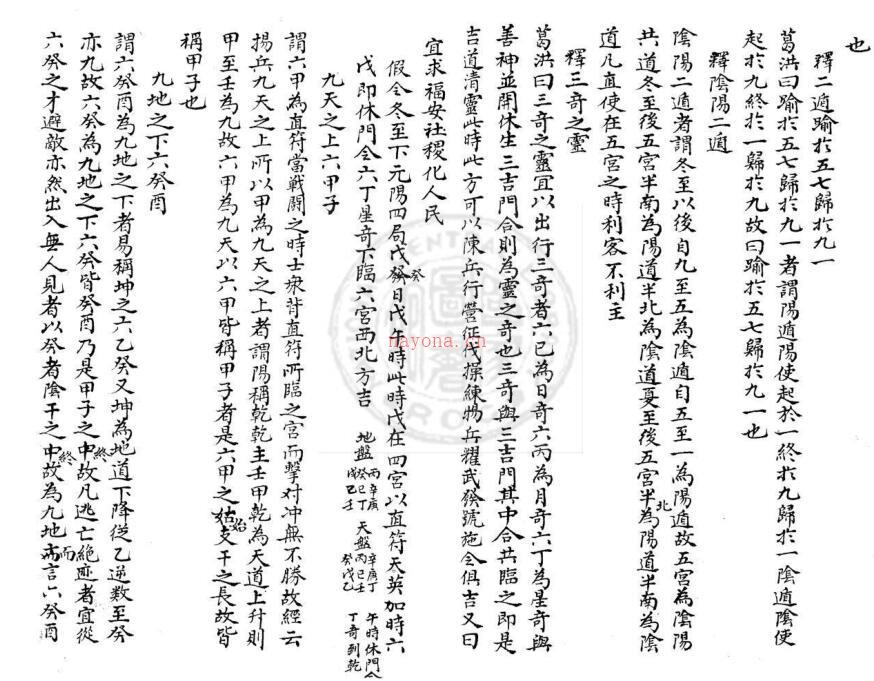 也
釋二遁踰於五七歸於九一
葛洪曰踰於五七歸於九一者謂陽遁陽使起於一終於九歸於一陰遁陰使
起於九終於一歸於九故曰踰於五七歸於九一也
釋陰陽二遁
陰陽二遁者謂冬至以後自九至五為陰遁自五至一為陽遁故五宮為陰陽
共道冬至後五宮半南為陽道半北為陰道夏至後五宮半北為陽道半南為陰
道凡直使在五宮之時利客不利主
釋三奇之靈
葛洪曰三奇之靈宜以出行三奇者六己為日奇六丙為月奇六丁為星奇與
善神並開休生三吉門合則為靈之奇也三奇與三吉門其中合共臨之即是
吉道清靈此時此方可以陳兵行營征伐操練物兵耀武發號施令俱吉又曰
宜求福安社稷化人民
假令冬至下元陽四局戊癸日戊午時此時戊在四宮以直符天英加時六
戊即休門合六丁星奇下臨六宮西北方吉 地盤 丙辛庚癸己丁戊乙壬 天盤 辛庚丁丙己壬癸戊乙 午時休門合丁奇到乾
九天之上六甲子
謂六甲為直符當戰鬪之時士衆背直符所臨之宮而擊对冲無不勝故經云
揚兵九天之上所以甲為九天之上者謂陽稱乾乾主壬甲乾為天道上升則
甲至壬為九故六甲為九天以六甲皆稱甲子者是六甲之始支干之長故皆
稱甲子也
九地之下六癸酉
謂六癸酉為九地之下者易稱坤之六乙癸又坤為地道下降從乙逆数至癸
亦九故六癸為九地之下六癸皆癸酉乃是甲子之中終故凡逃亡絕迹者宜從
六癸之才避敵亦然出入無人見者以癸者陰干之中終故為九地而言六癸酉
nayona.cn